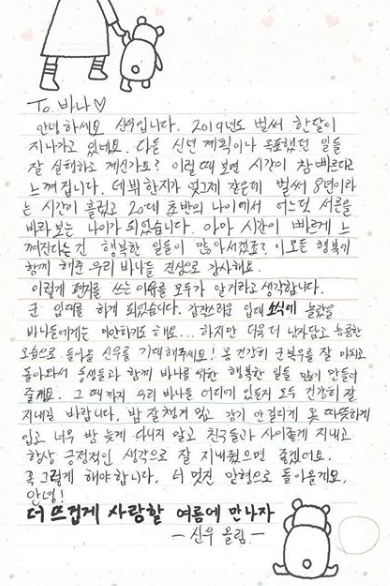 To. 바나♡
안녕하세요 신우입니다. 2019년도 벌써 한달이
지나가고 있네요. 다들 신년 계획이나 목표했던 일들
잘 실행하고 계신가요? 이럴 때 보면 시간이 참 빠르다고
느껴집니다. 데뷔한지가 엊그제 같은데 벌써 8년이라
는 시간이 흘렀고 20대 초반의 나이에서 어느덧 서른을
바라보는 나이가 되었습니다. 아마 시간이 빠르게 느
껴진다는건 행복한 일들이 많아서겠죠? 이 모든 행복가
함께 해준 우리 바나들 진심으로 감사해요.
이렇게 편지를 쓰는 이유를 모두가 알거라고 생각합니다.
군 입대를 하게 되었습니다. 갑작스러운 입대 소식에 놀랐을
바나들에게는 미안하기도 해요... 하지만 더욱 더 남자답고 늠름한
모습으로 돌아올 신우를 기대해주세요! 몸 건강히 군복무를 잘 마치고
돌아와서 동생들과 함께 바나를 위한 행복한 일들 많이 만들어
줄게요. 그 때까지 우리 바나들 어디에 있든지 모두 건강히 잘
지내길 바랍니다. 밥 잘 챙겨 먹고 감기 안걸리게 옷 따뜻하게
입고 너무 밤 늦게 다니지 말고 친구들과 사이좋게 지내고
항상 긍정적인 생각으로 잘 지내줬으면 좋겠어요.
꼭 그렇게 해야합니다. 더 멋진 맏형으로 돌아올게요.
안녕!
더 뜨겁게 사랑할 여름에 만나자
- 신우 올림 -